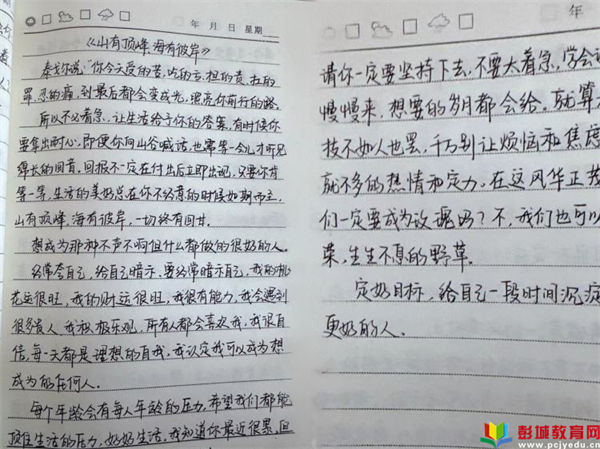 年 月 日 星期
《山有顶峰,海有彼岸》
泰戈尔说:"你今天受的苦,吃的亏,担的责,扛的
罪,忍的痛,到最后都会变成光,照亮你前行的路。
所以不必着急,让生活给予你的答案,有时候你
要拿出耐心,即便你向山谷喊话,也需等一会儿才听见
绵长的回音,回报不一定在付出后立即出现,只要你肯
等一等,生活的美好总在你不经意的时候如期而至,
山有顶峰,海有彼岸,一切终有回甘。
想成为那种不声不响但什么都做的很好的人。
经常夸自己,给自己暗示,要经常暗示自己,我的桃
花运很旺,我的财运很旺,我很有能力,我会遇到
很多贵人,我积极乐观,所有人都会喜欢我,我很自
信,每一天都是理想的自我,我认定我可以成为想
成为的任何人。
每个年龄会有每个年龄的压力,希望我们都能
顶住生活的压力,好好生活,我知道你最近很累,但
年
请你一定要坚持下去,不要太着急,学会
慢慢来,想要的岁月都会给,就算
技不如人也罢,千万别让烦恼和焦虑
就不多的热情和定力。在这风华正茂
们一定要成为玫瑰吗?不,我们也可以
菜,生生不息的野草。
定好目标,给自己一段时间沉淀
更好的人.
彭城教育网
www.pcjyedu.cn